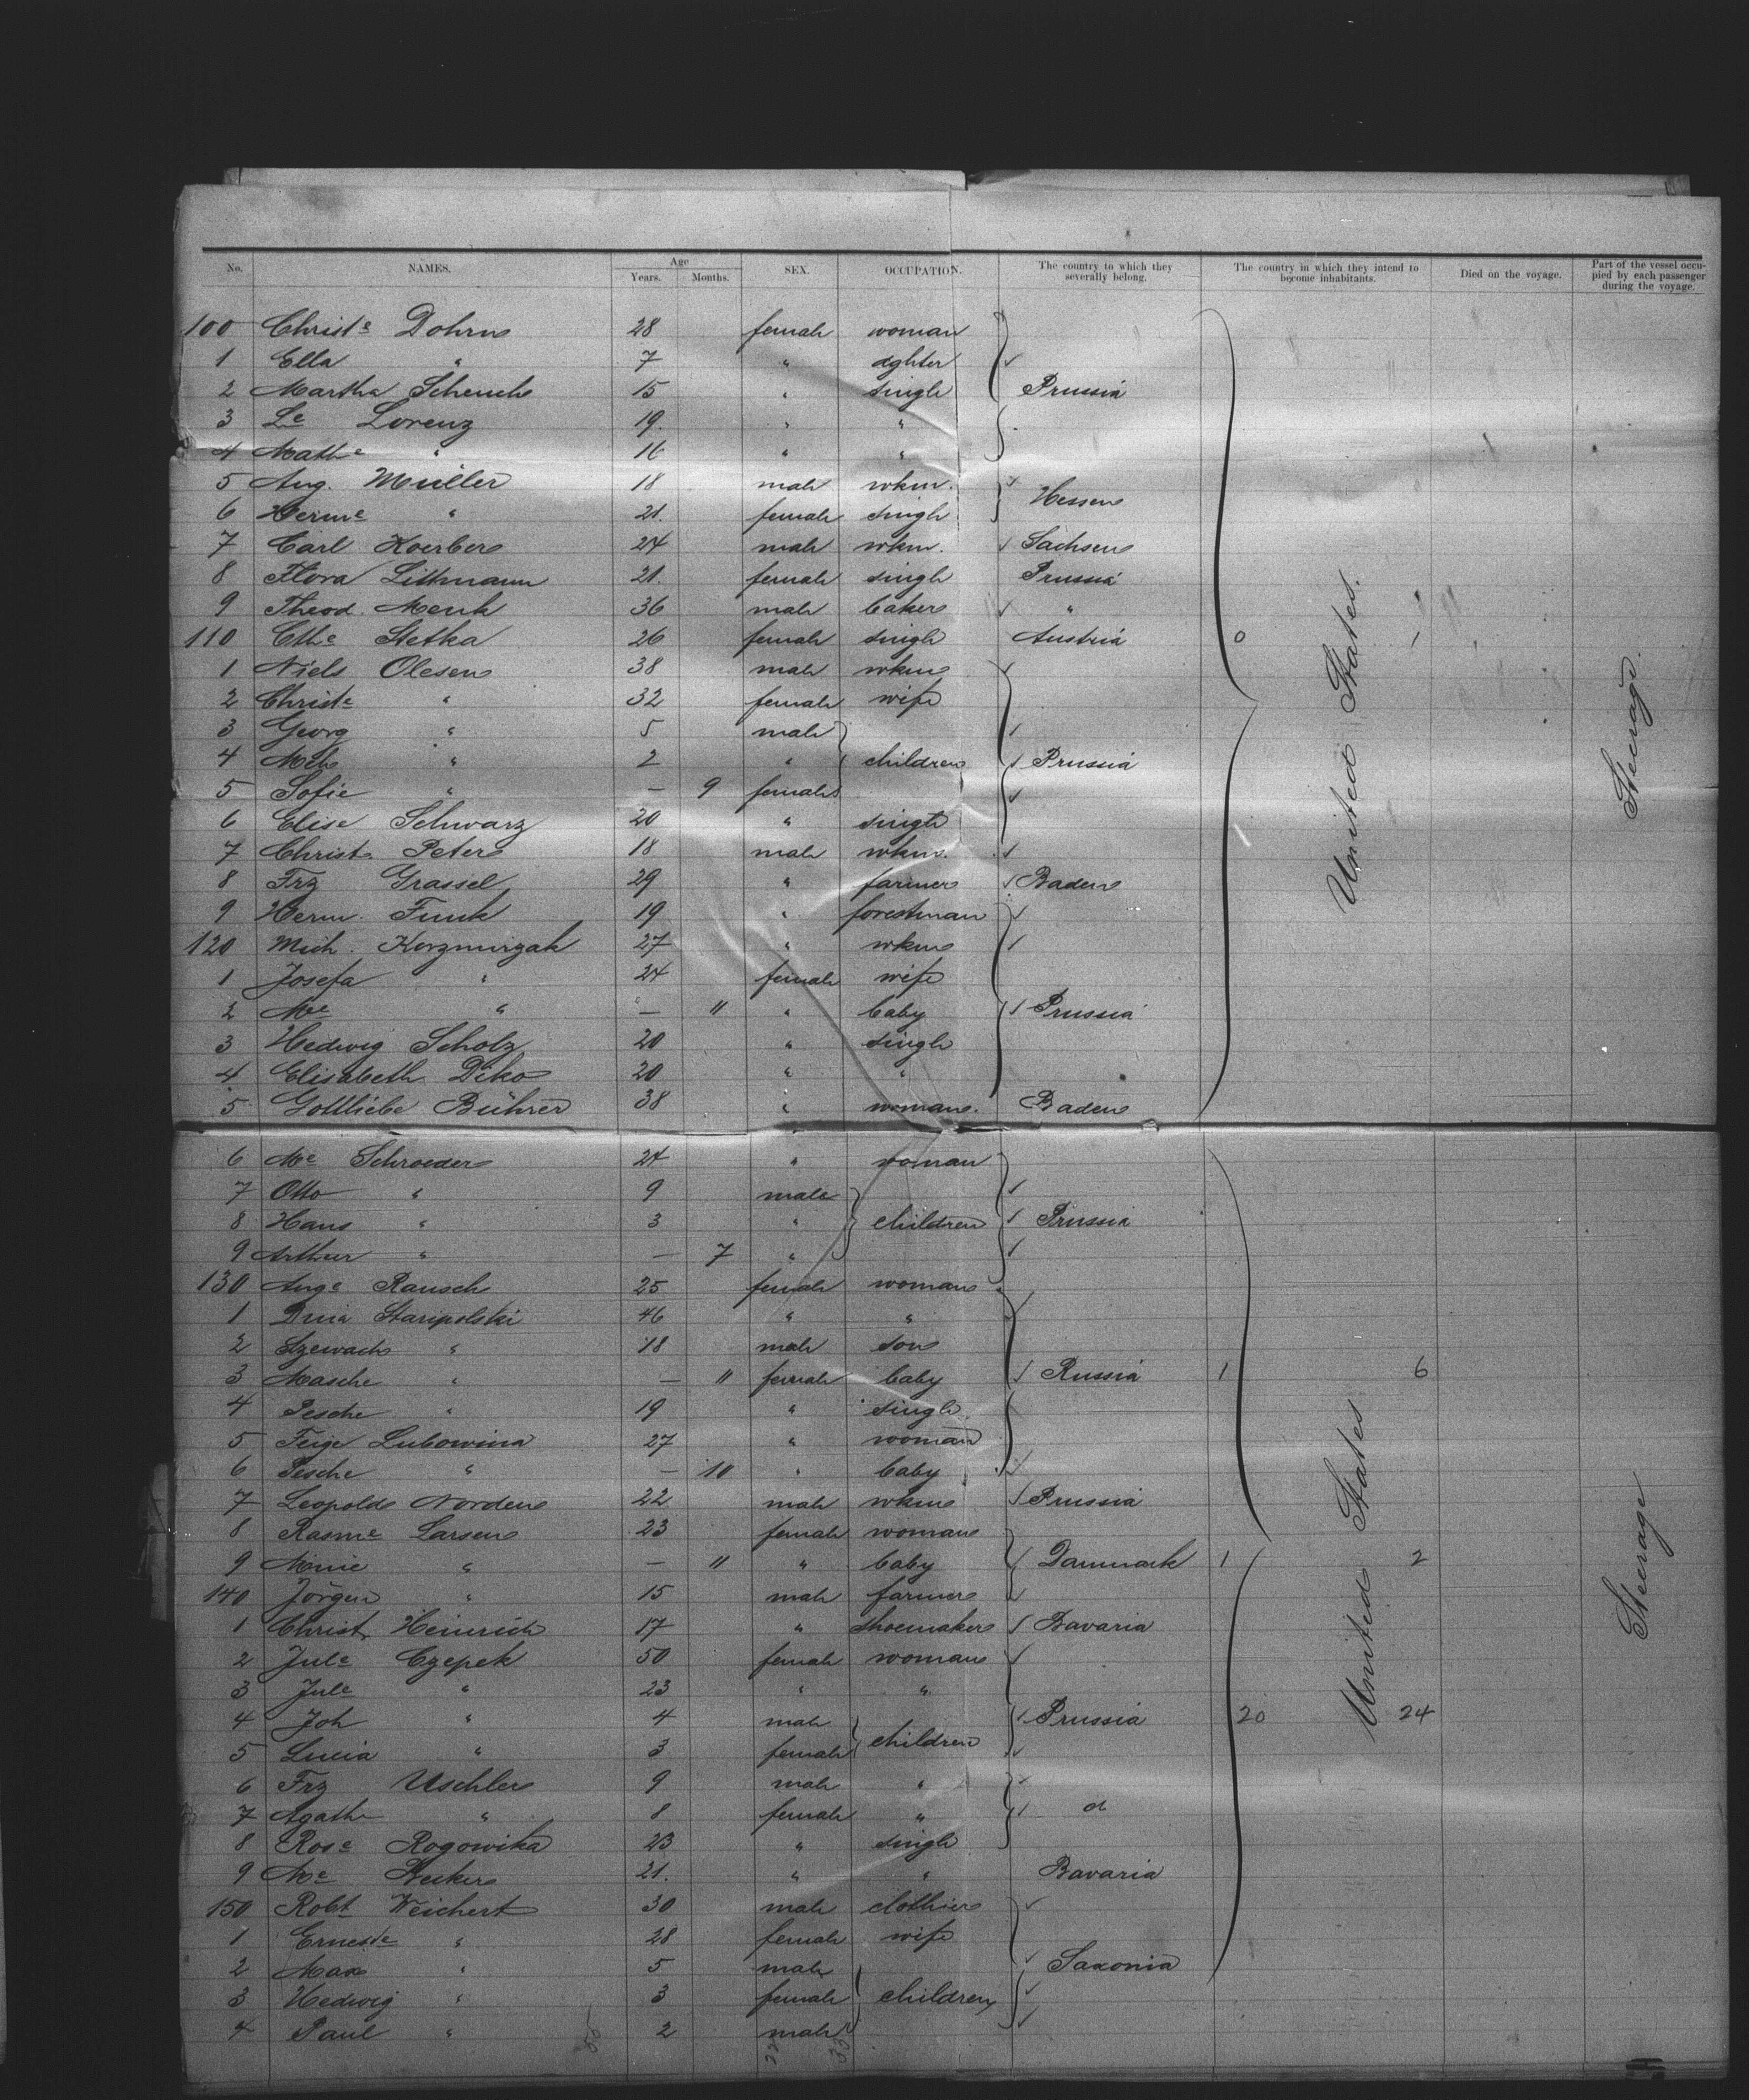 No. NAMES. Age Years. Months. SEX. OCCUPATION. The country to which they severally belong. The country in which they intend to become inhabitants. Died on the voyage. Part of the vessel occupied by each passenger during the voyage.
100 Christe Dohrn 28 female woman
1 Ella " 7 " dghter
2 Martha Schench 15 " single Prussia
3 Le Lorenz 19. " "
4 Mathe " 16 " "
5 Aug. Müller 18 male wkm. Hessen
6 Herme " 21. female single
7 Carl Koerber 24 male wkm. Sachsen
8 Flora Littmann 21. female single Prussia
9 Theod. Menk 36 male baker "
110 Cthe Stetka 26 female single Austria 0 1
1 Niels Olesen 38 male wkm
2 Christe " 32 female wife
3 Georg " 5 male
4 " 2 " children Prussia
5 Sofie " — 9 female
6 Elise Schwarz 20 " single
7 Christ. Peter 18 male wkm.
8 Frz Grassel 29 " farmer Baden
9 Herm. Funk 19 " forestman
120 Mich. 27 " wkm
1 Josefa " 24 female wife
2 Me " — 11 " baby Prussia
3 Hedwig Scholz 20 " single
4 Elisabeth Diko 20 " "
5 Gottliebe Bührer 38 " woman. Baden
United States.
Steerage.
6 Me Schroeder 24 " woman
7 Otto " 9 male
8 Hans " 3 " children Prussia
9 Arthur " — 7 "
130 Auge Rausch 25 female woman
1 Staripolski 46 " "
2 " 18 male son
3 Masche " — 11 female baby Russia 1 6
4 Pesche " 19 " single.
5 Feige Lubowina 27 " woman
6 Pesche " — 10 " baby
7 Leopold Norden 22 male wkm Prussia
8 Rasme Larsen 23 female woman
9 " — 11 " baby Danmark 1 2
140 Jörgen " 15 male farmer
1 Christ. Heinrich 17 " shoemaker Bavaria
2 Jule Czepek 50 female woman
3 Jule " 23 " "
4 Joh " 4 male Prussia 20 24
5 Lucia " 3 female children
6 Frz Uschler 9 male "
7 Agathe " 8 female "
8 Rose Rogowika 23 " single
9 Me 21. " " Bavaria
150 Robt Weichert 30 male clothier
1 Erneste " 28 female wife
2 Max " 5 male Saxonia
3 Hedwig " 3 female children
4 Paul " 2 male
United States
Steerage